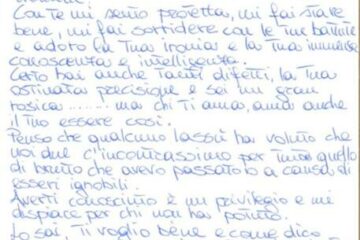 Con te mi sento protetta, mi fai stare
bene, mi fai sorridere con le tue battute
e adoro la tua ironia e la tua immensa
conoscenza e intelligenza.
Certo hai anche tanti difetti, la tua
ostinata precisione e sei un gran
rosica......... ma chi ti ama, ama anche
il tuo essere così.
Penso che qualcuno lassù ha voluto che
noi due c'incontrassimo per tutto quello
di brutto che avevo passato a causa di
esseri ignobili.
Averti conosciuto è un privilegio e mi
dispiace per chi non ha potuto.
Lo sai, ti voglio bene e come dico